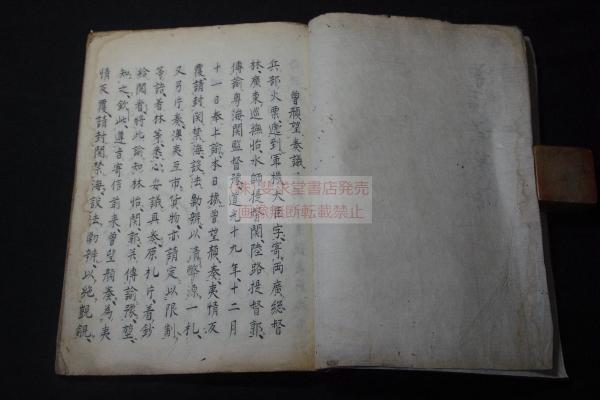 曽顒望奏議
兵部火票遞到軍機大臣字寄兩廣総督
林、廣東巡撫怡、水師提督関、陸路提督郭、
傳諭粤海関監督豫、道光十九年十二月
十一日奉上諭、本日據曽望顔奏夷情反
覆請封関禁海設法勦辦以清弊源一札、
又另片奏澳夷互市貨物、亦請定以限制
等語、着林等悉心妥議具奏、原札片着鈔
給閲看、將此諭知林怡関郭、并傳諭豫堃
知之、欽此、遵旨寄信前来、曽望顔奏為夷
情反覆請封関禁海、設法勦辦以絶覬覦、
(株)斐求堂書店発売
画像無断転載禁止